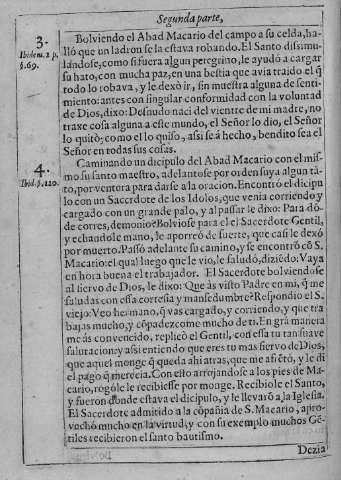 Segunda parte,
3.
Ibidem. 2. p.
§. 69.
Bolviendo el Abad Macario del campo a su celda, ha-
llò que un ladron se la estava robando. El Santo dissimu-
lándose, como si fuera algun peregrino, le ayudó a cargar
su hato, con mucha paz, en una bestia que avia traido el q̃
todo lo robava, y le dexò ir, sin muestra alguna de senti-
miento: antes con singular conformidad con la voluntad
de Dios, dixo: Desnudo naci del vientre de mi madre, no
traxe cosa alguna a este mundo, el Señor lo dio, el Señor
lo quitò; como el lo quiso, assi se á hecho, bendito sea el
Señor en todas sus cosas.
4.
Ibid. §. 120.
Caminando un dicipulo del Abad Macario con el mis-
mo su santo maestro, adelantose por orden suya algun tã-
to, por ventora para darse a la oracion. Encontró el dicipu
lo con un Sacerdote de los Idolos, que venia corriendo, y
cargado con un grande palo, y al passar le dixo: Para dõ-
de corres, demonio? Bolviose para el el Sacerdote Gentil,
y echandole mano, le aporreò de suerte, que casi le dexó
por muerto. Passó adelante su camino, y se encontró cõ S.
Macario: el qual luego que le vio, le saludó, diziẽdo: Vaya
en hora buena el trabajador. El Sacerdote bolviendose
al siervo de Dios, le dixo: Que às visto Padre en mi, q̃ me
saludas con essa cortesia y mansedumbre? Respondio el S.
viejo: Veo hermano, q̃ vas cargado, y corriendo, y que tra
bajas mucho, y cõpadezcome mucho de ti. En grã manera
me ás convencido, replicò el Gentil, con essa tu tan suave
salutacion: y assi entiendo que eres tu mas siervo de Dios,
que aquel monge q̃ queda ahi atras, que me afrẽtó, y le di
el pago q̃ merecia. Con esto arrojandose a los pies de Ma-
cario, rogóle le recibiesse por monge. Recibiole el Santo,
y fueron donde estava el dicipulo, y le llevarõ a la Iglesia.
El Sacerdote admitido a la cõpañia de S. Macario, apro-
vechó mucho en la virtud, y con su exemplo muchos Gẽ-
tiles recibieron el santo bautismo.
Dezia